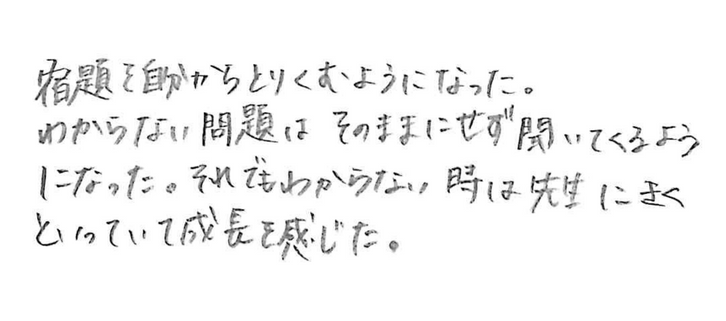 宿題を自分からとりくむようになった。
わからない問題は そのままにせず聞いてくるよう
になった。それでもわからない 時は先生にきく
といっていて成長を感じた。